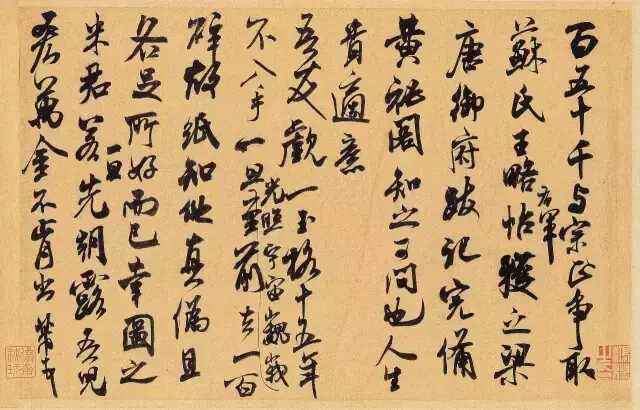 百五十千与宗正争取
蘇氏王略帖右軍獲之梁
唐御府跋記完備
黄祕閣知之可問也人生
貴適意
吾友覷一玉格十五年
不入手一旦光照宇宙巍峩至前去一百
碎故紙知他真偽且
各足所好而已幸圖之
米君若一旦先朝露吾兒
吝萬金不肯出芾